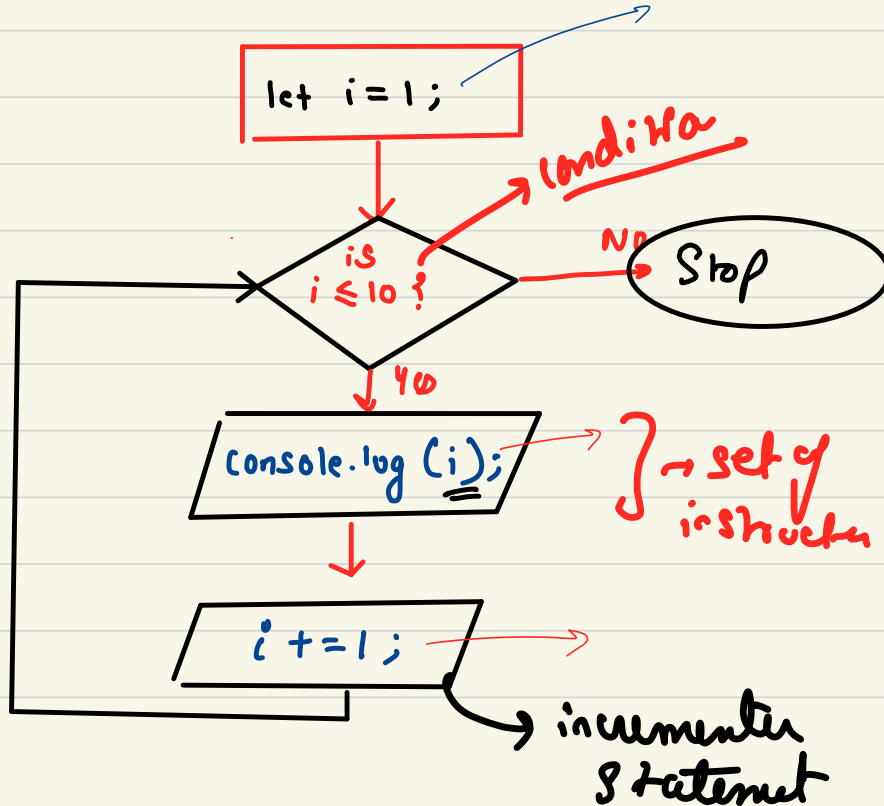 let i = 1 ;
condition
is
i ≤ 10 ?
No
Stop
Yes
console.log (i);
→ set of
instruction
i += 1 ;
incrementer
statemet